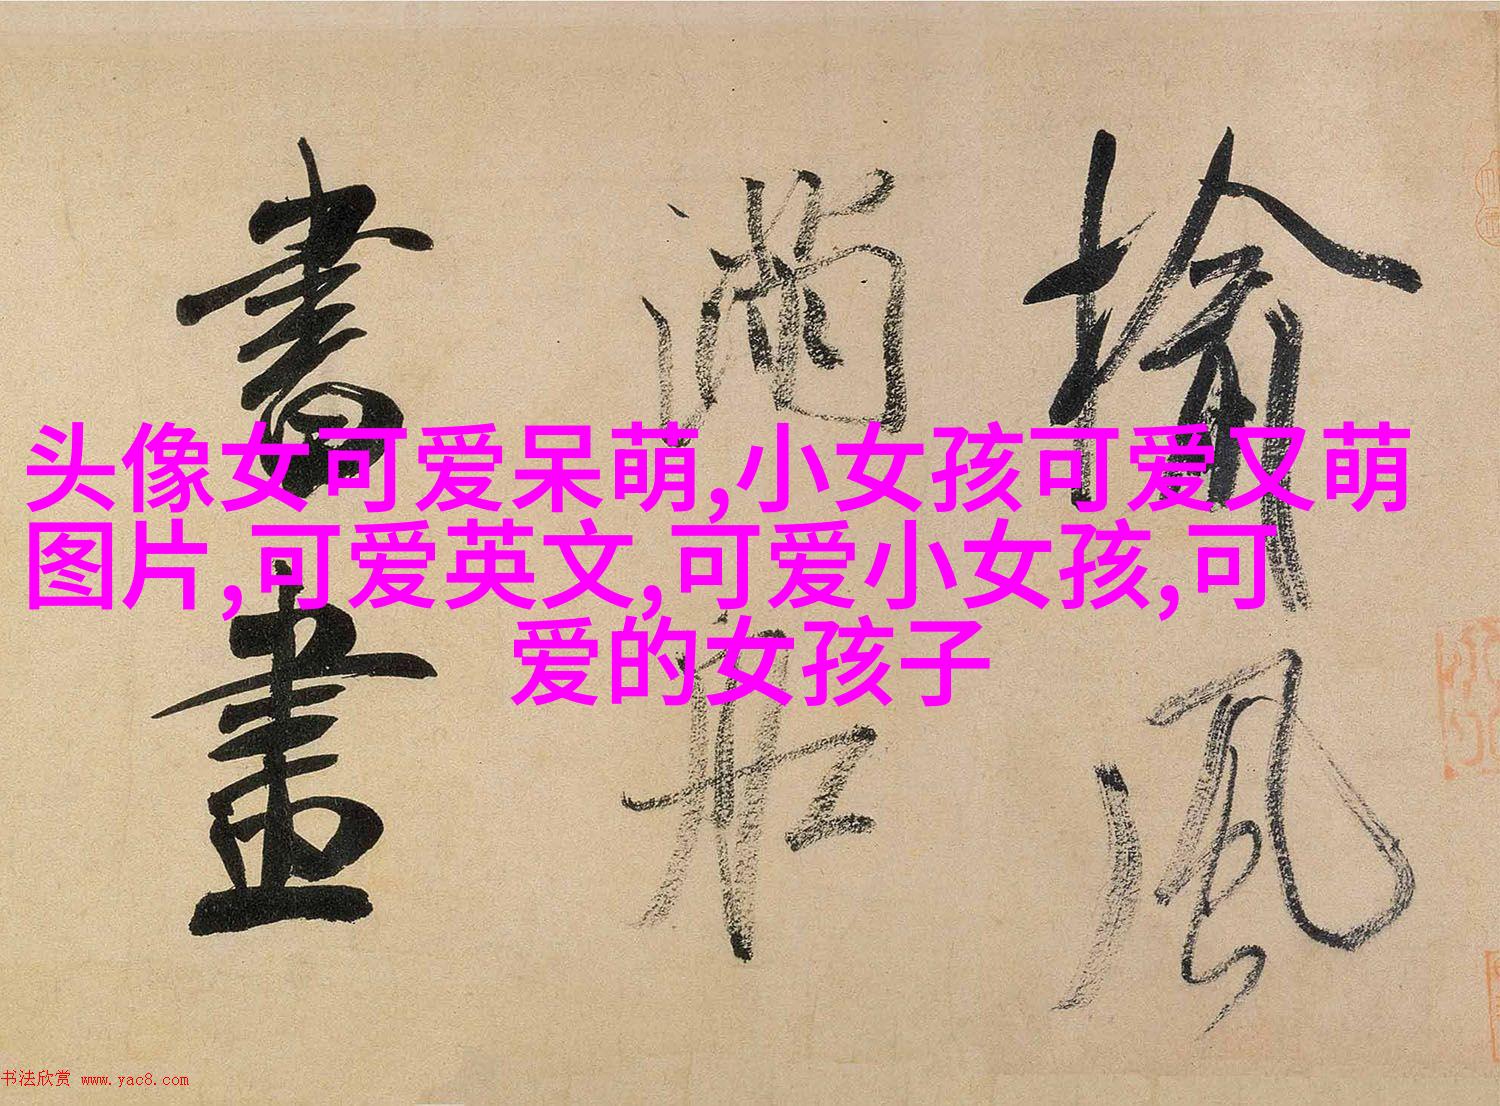 揄風
滿船
書畫
头像女可爱呆萌,小女孩可爱又萌
图片,可爱英文,可爱小女孩,可
爱的女孩子
书法欣赏 www.yac8.com